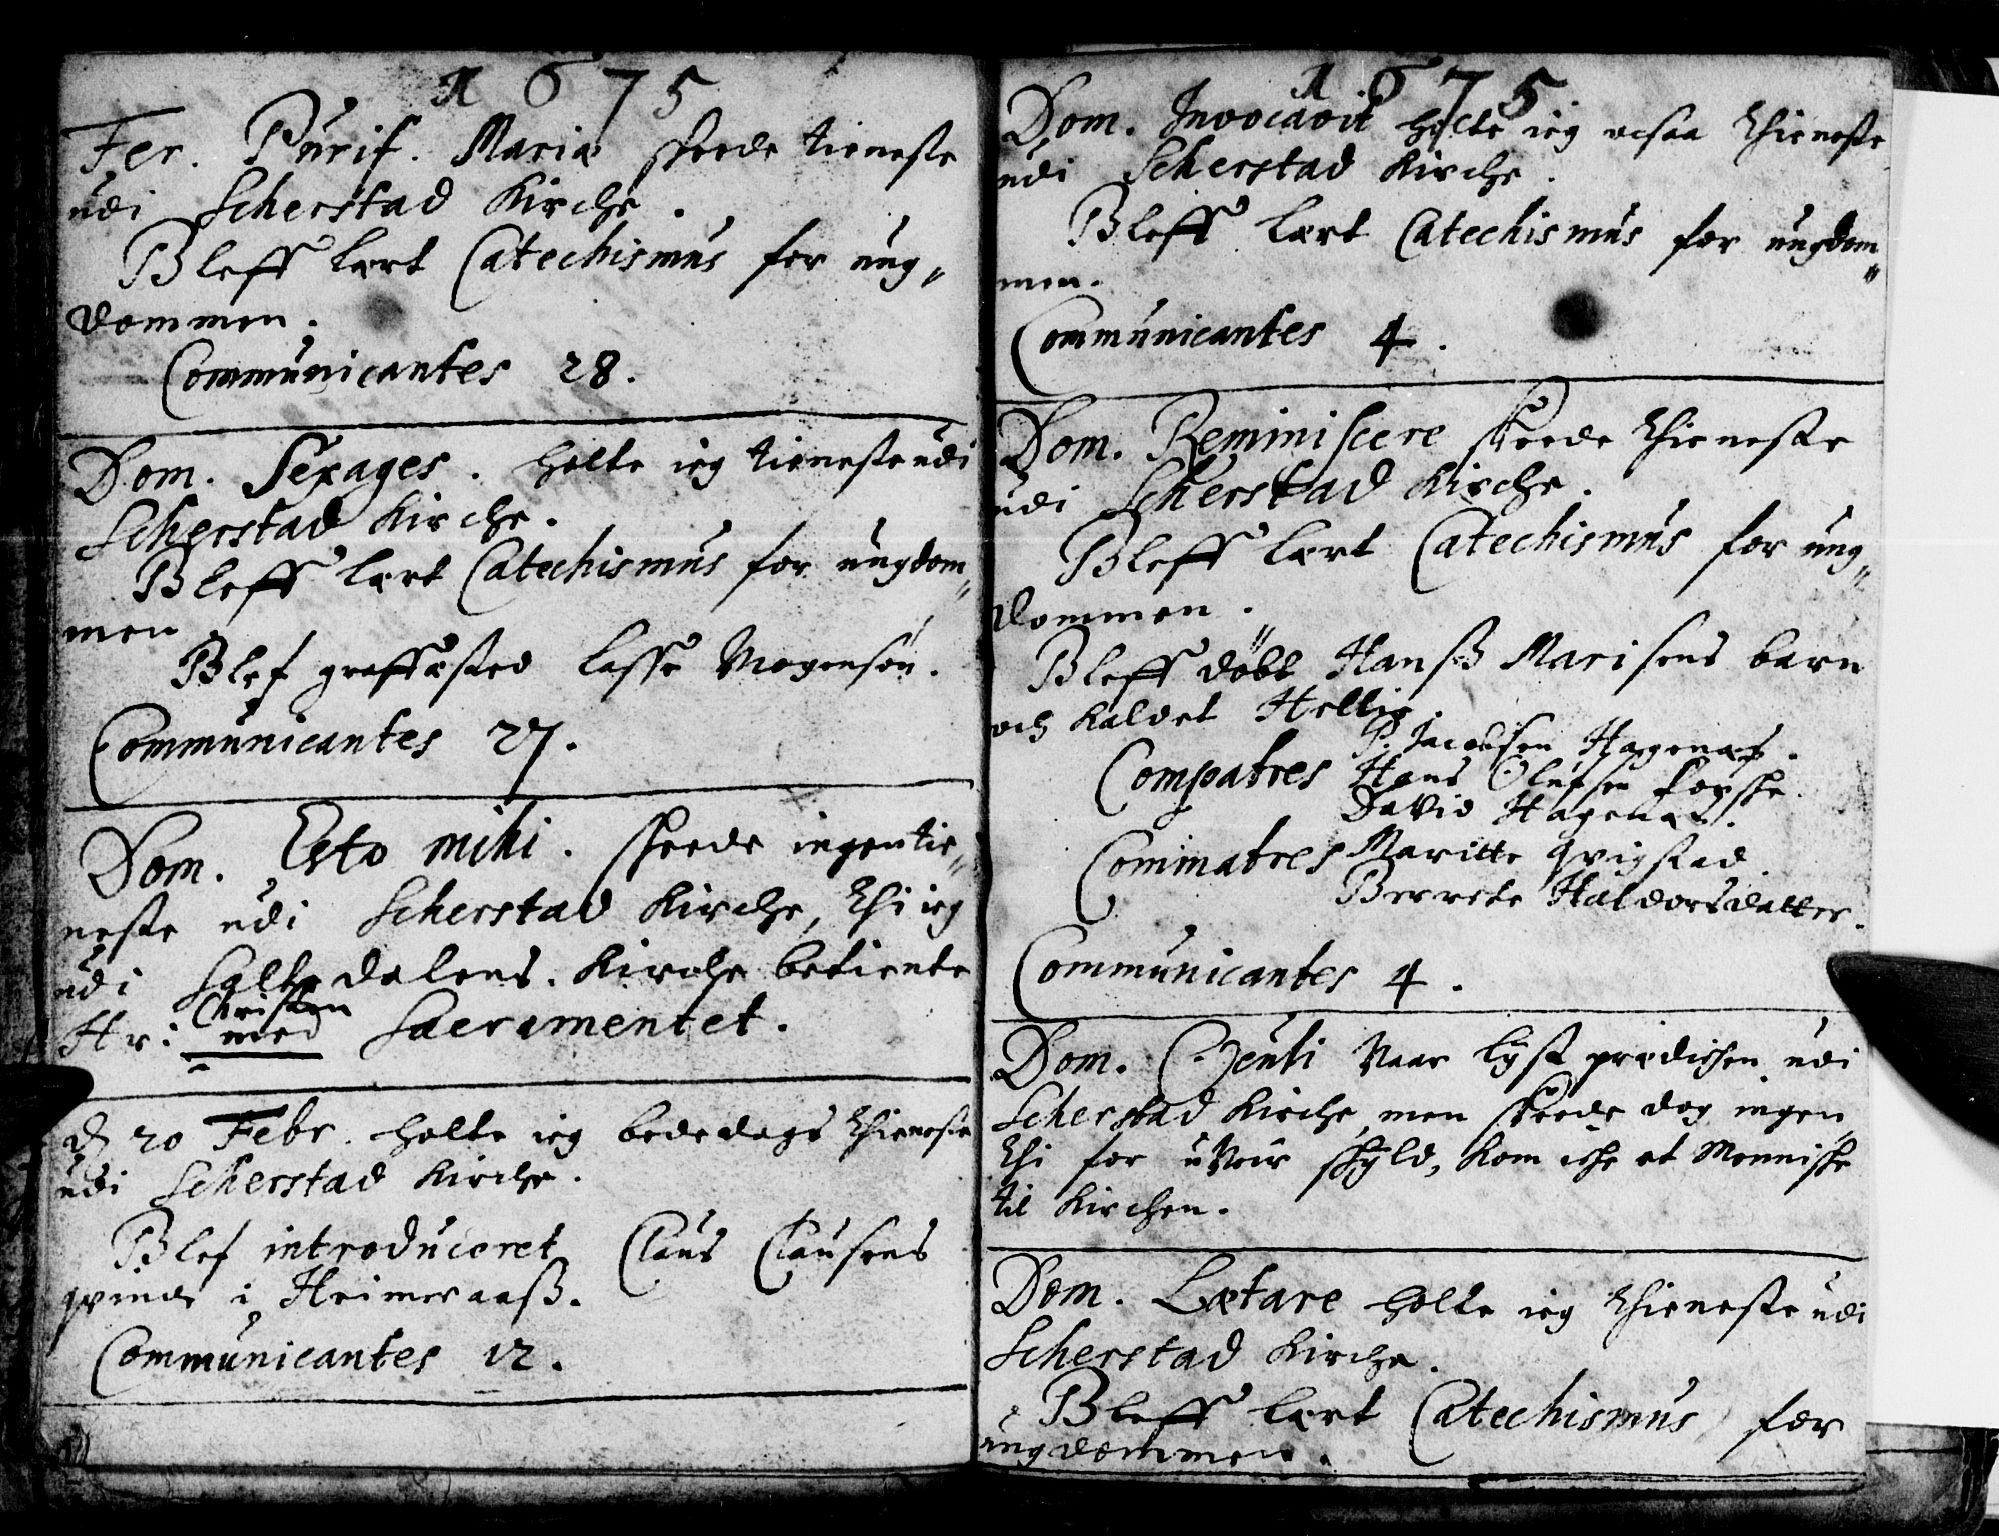 1675
Fer. Purif. Mariæ skeede tieneste
udi Scherstad Kirche.
Bleff lært Catechismus for ung„
dommen.
Communicantes 28.
Dom. Sexages. holte ieg tieneste udi
Scherstad Kirche.
Bleff lært Catechismus for ungdom„
men
Blef graffæsted Lasse Mogensøn.
Communicantes 27.
Dom. Esto mihi. skeede ingen tie„
neste udi Scherstad Kirche, thi ieg
udi Saltedalens Kirche betiente
Hr: Christen med Sacramentet.
d 20 Febr. holte ieg bededags thieneste
udi Scherstad Kirche.
Blef introduceret Claus Clausens
qvinde i Heimeraasß.
Communicantes 12.
1675
Dom. Invocavit holte ieg ocsaa thieneste
udi Scherstad Kirche.
Bleff lært Catechismus for ungdom„
men.
Communicantes 4.
Dom. Reminiscere skeede thieneste
udi Scherstad Kirche.
Bleff lært Catechismus for ung„
dommen.
Bleff döbt Hanß Marisens barn
och kaldet Hellig.
Compatres P. Jacobsen Hagenæs.
Hans Olufsen Føyske.
David Hagenæs.
Commatres Maritte Qvigstad
Berrete Haldorsdatter.
Communicantes 4.
Dom. Oculi Vaar lyst prædichen udi
Scherstad Kirche, men skeede dog ingen,
thi for uveir skyld, kom iche et Menniske
til Kirchen.
Dom. Lætare holte ieg thieneste udi
Scherstad Kirche.
Bleff lært Catechismus for
ungdommen.